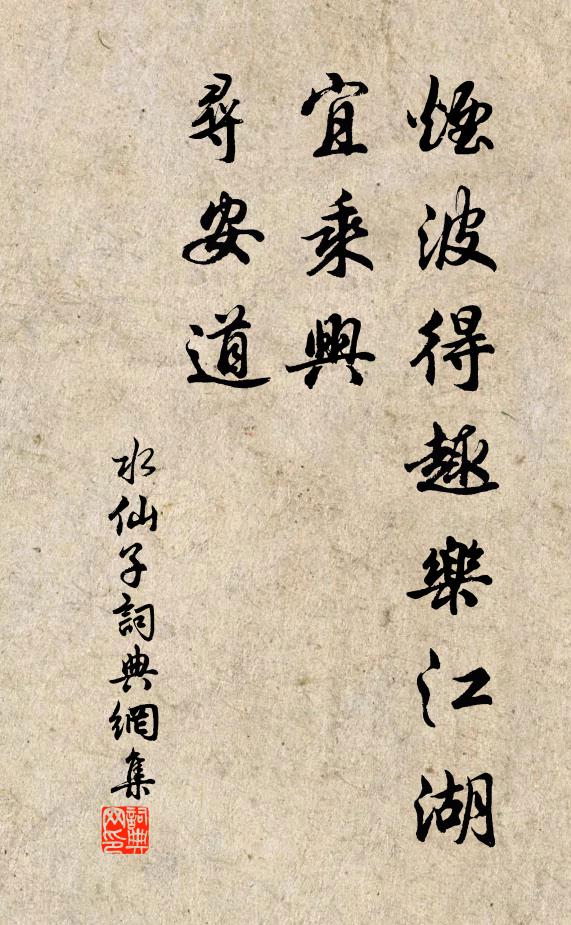 煙波得趣樂江湖
宜乘興
尋安道
水仙子詞典網集
詞典
网印